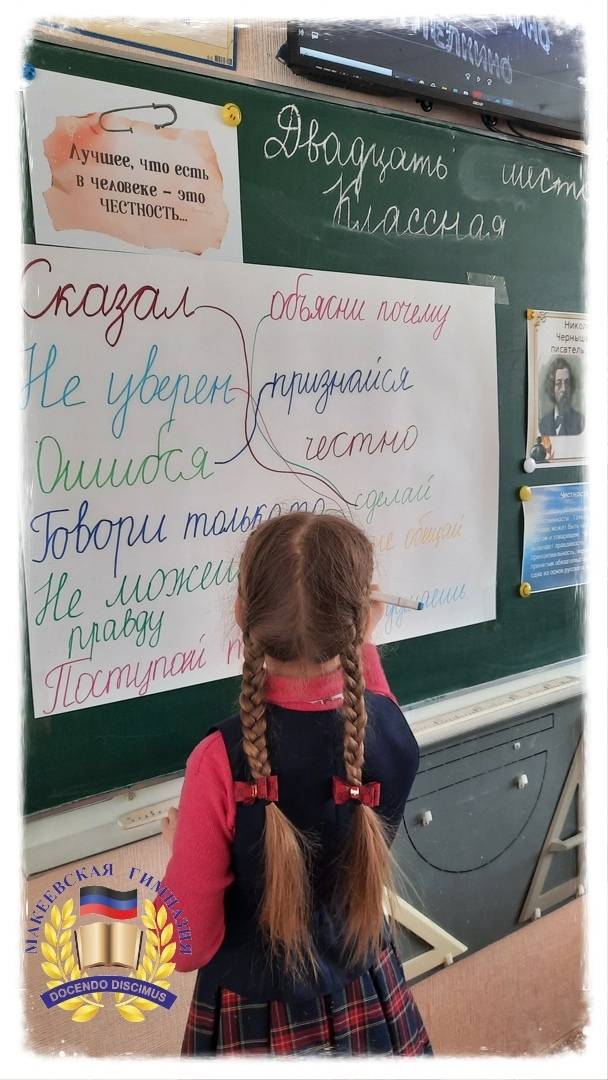 Лучшее, что есть
в человеке – это
ЧЕСТНОСТЬ...
Двадцать шесто
Классная
Сказал объясни почему
Не уверен признайся
честно
Ошибся сделай
Говори только то не обещай
Не можеш думаешь
правду
Поступай
Никол
Черныш
писатель
Честность
МАКЕЕВСКАЯ ГИМНАЗИЯ
DOCENDO DISCIMUS